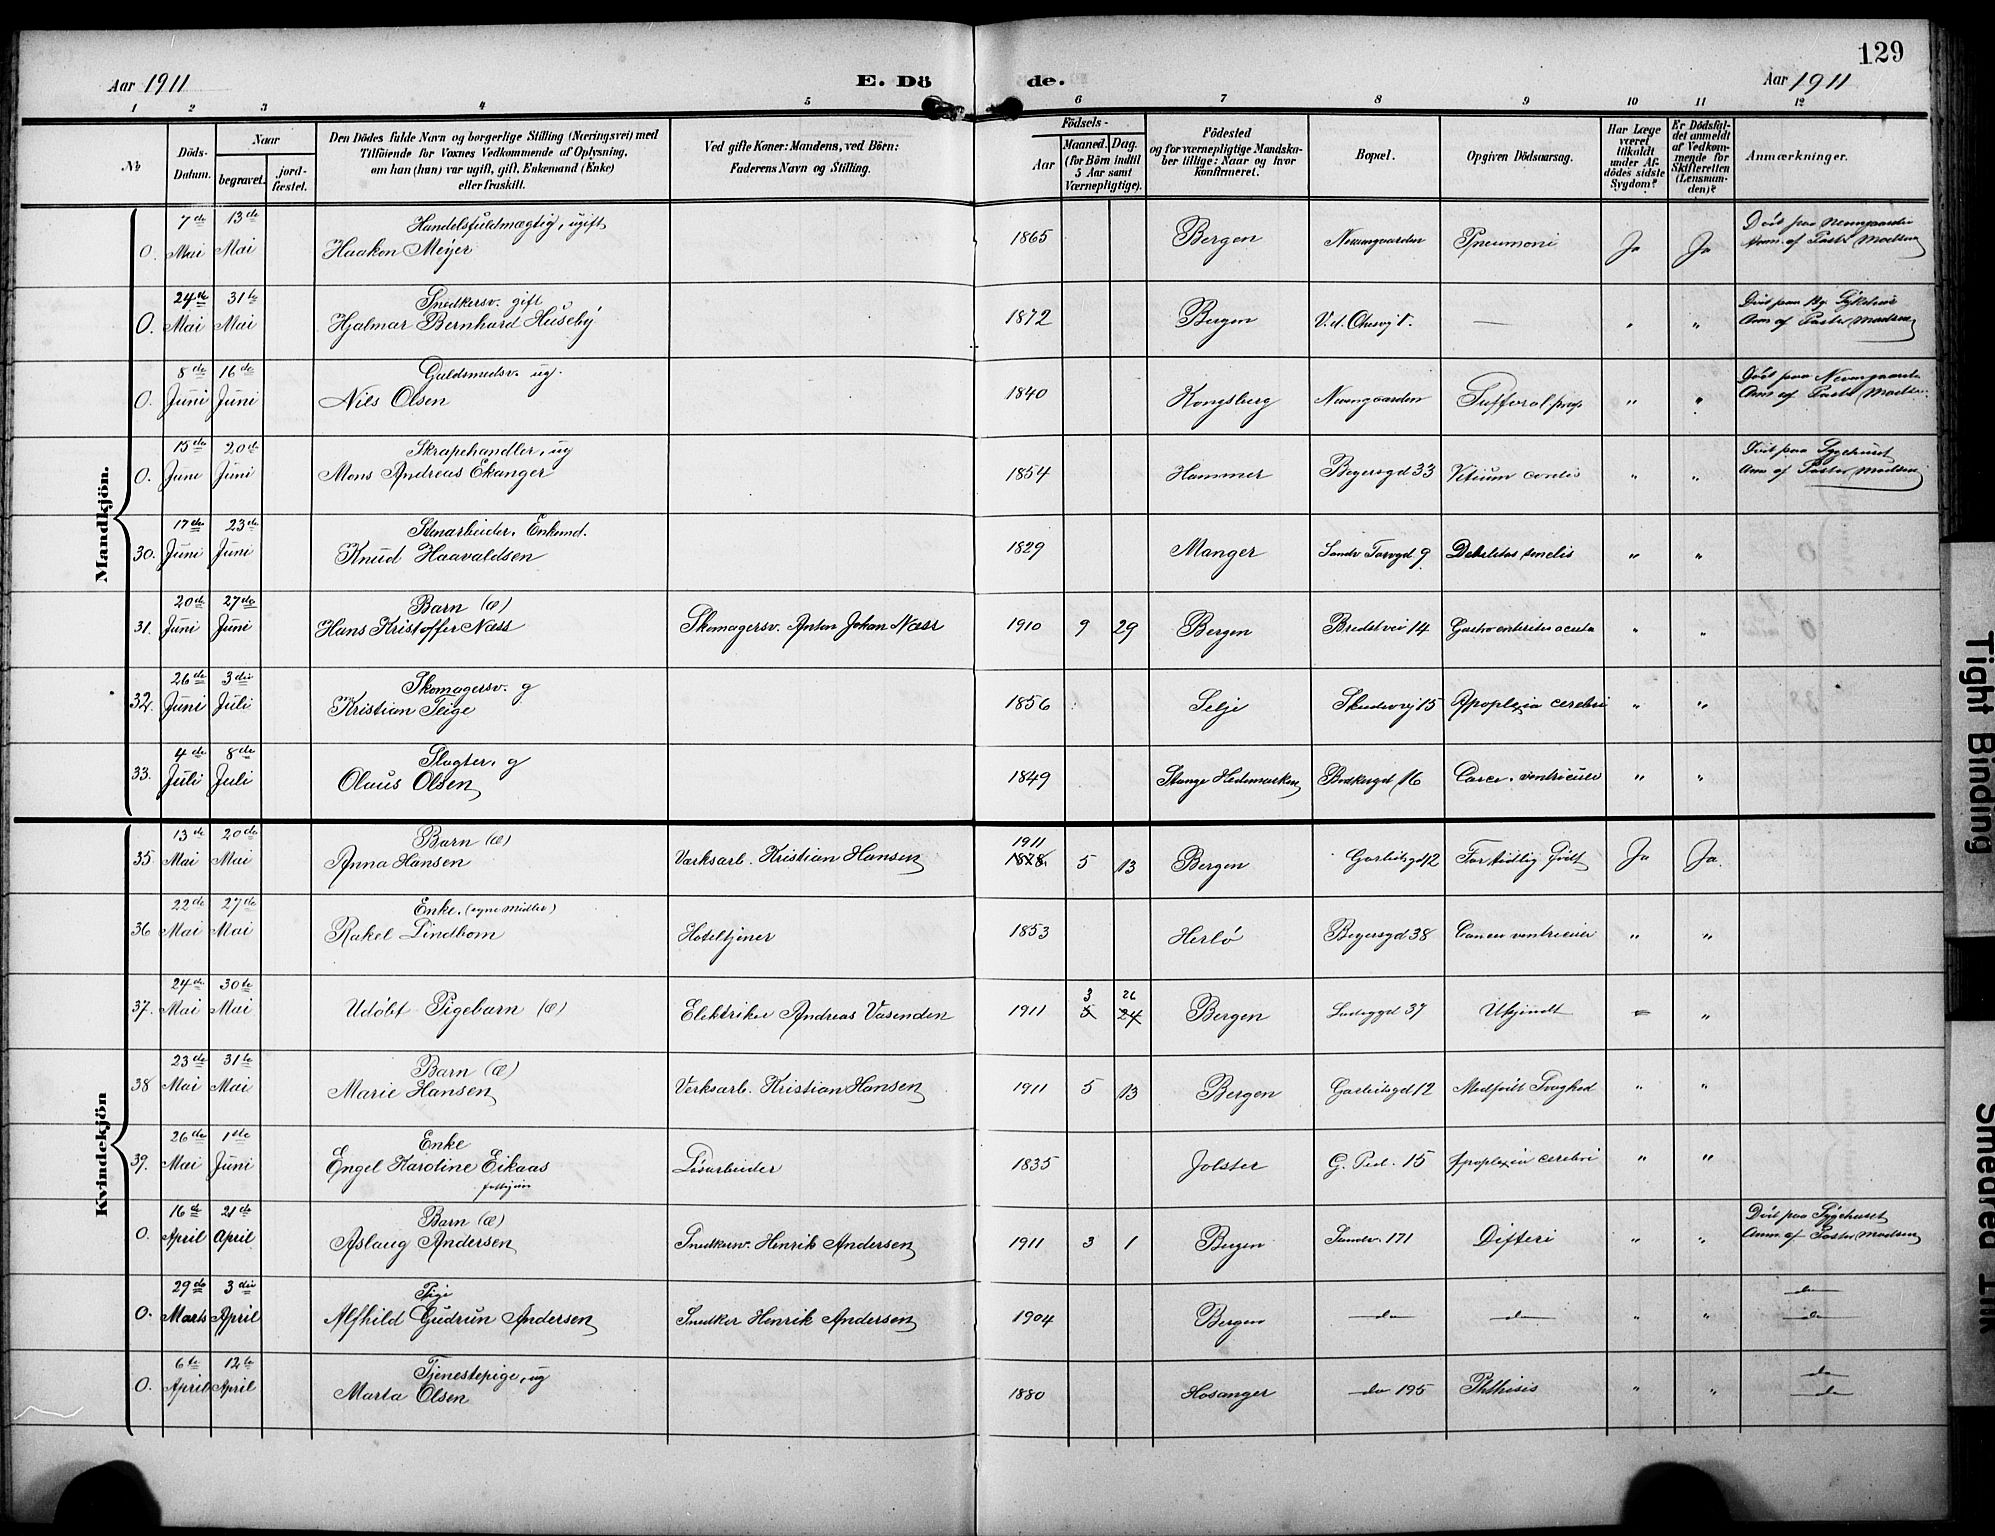 129
Aar 1911 E. Dö de. Aar 1911
1 2 3 4 5 6 7 8 9 10 11 12
No Döds-Datum. Naar begravet. jord-fæstet. Den Dödes fulde Navn og borgerlige Stilling (Næringsvei) med Tilföiende for Voxnes Vedkommende af Oplysning, om han (hun) var ugift, gift, Enkemand (Enke) eller fraskilt. Ved gifte Koner: Mandens, ved Börn: Faderens Navn og Stilling. Födsels- Aar Maaned. Dag. (for Börn indtil 5 Aar samt Værnepligtige). Födested og for værnepligtige Mandskaber tillige: Naar og hvor Konfirmeret. Bopæl. Opgiven Dödsaarsag. Har Læge været tilkaldt under Afdödes sidste Sygdom? Er Dödsfaldet anmeldt af Vedkommende for Skifteretten (Lensmanden)? Anmærkninger.
Mandkjön.
0. 7de Mai 13de Mai Handelsfuldmægtig, ugift Haakon Meyer 1865 Bergen Nevengaarden Pneumoni Ja Ja Död paa Nevengaarden Anm. af Pastor Madsen
0. 24de Mai 31te Mai Snedkersv. gift Hjalmar Bernhard Huseby 1872 Bergen — " " Död paa Sykehus Anm af Pastor Madsen
0. 8de Juni 16de Juni Guldsmedsv. ug. Nils Olsen 1840 Kongsberg Nevengaarden " " Död paa Nevengaarden Anm af Pastor Madsen
0. 15de June 20de Juni Skrapehandler, ug Mons Andreas Ekanger 1854 Hammer Beyersgd 33 Vitium cordis " " Död paa Sygehuset Anm af Pastor Madsen
30. 17de Juni 23de Juni Stenarbeider, Enkemd. Knud Haavaldsen 1829 Manger Sandv Torvgd 9 Debilitas senilis " "
31. 20de Juni 27de Juni Barn (Æ) Hans Kristoffer Næss Skomagersv. Anton Johan Næss 1910 9 29 Bergen Bredstvei 14 Gastroenteritis acuta " "
32. 26de Juni 3die Juli Skomagersv. g Kristian Teige 1856 Selje Skudevig 15 Apoplexia cerebri " "
33. 4de Juli 8de Juli Slagter, g Olaus Olsen 1849 Stange Hedemarken Bødkergd 16 Cancer ventriculi " "
Kvindekjön
35 13de Mai 20de Mai Barn (Æ) Anna Hansen Værksarb. Kristian Hansen 1911 1878. 5 13 Bergen Garbitsgd 12 For tidlig Født Ja Ja.
36 22de Mai 27de Mai Enke. (egne Midler) Rakel Lindbom Hoteltjener 1853 Herlö Beyersgd 38 Cancer ventriculi " "
37. 24de Mai 30te Mai Udöbt Pigebarn (Æ) Elektriker Andreas Vasenden 1911 3 5 26 24 Bergen Ladeggd 37 "
38 23de Mai 31te Mai Barn (Æ) Marie Hansen Verksarb. Kristian Hansen 1911 5 13 Bergen Garbitsgd 12 Medfödt Svaghed " "
39. 26de Mai 1ste Juni Enke Engel Karoline Eikaas Løsarbeider 1835 Jolster G. Ped. 15 Apoplexia cerebri " "
0. 16de April 21de April Barn (Æ) Aslaug Andersen Snedkersv. Henrik Andersen 1911 3 1 Bergen Sandv. 171 Difteri " " Död paa Sygehuset Anm. af Pastor Madsen
0. 29de Marts 3die April Pige Alfhild Gudrun Andersen Snedker Henrik Andersen 1904 Bergen do do " " do do
0. 6te April 12te April Tjenestepige, ug Marta Olsen 1880 Hosanger do 195 Phthisis " " do do
Tight Binding
Smeared Ink